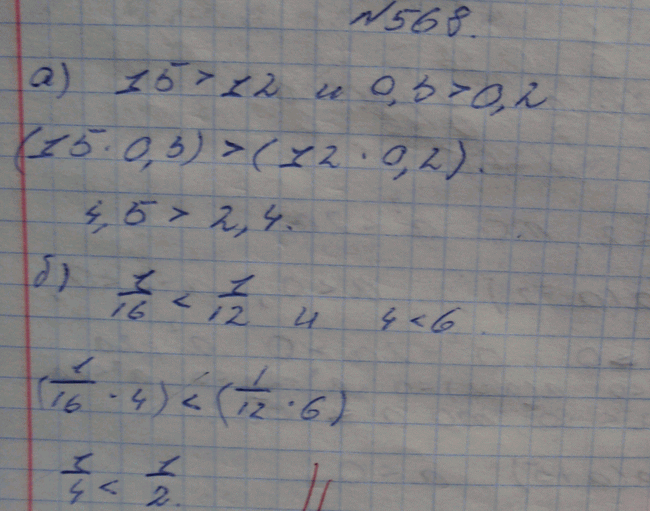 №568.
а) 15 > 12 и 0,3 > 0,2
(15 · 0,3) > (12 · 0,2).
4,5 > 2,4.
б) 1/16 < 1/12 и 4 < 6.
(1/16 · 4) < (1/12 · 6)
1/4 < 1/2.